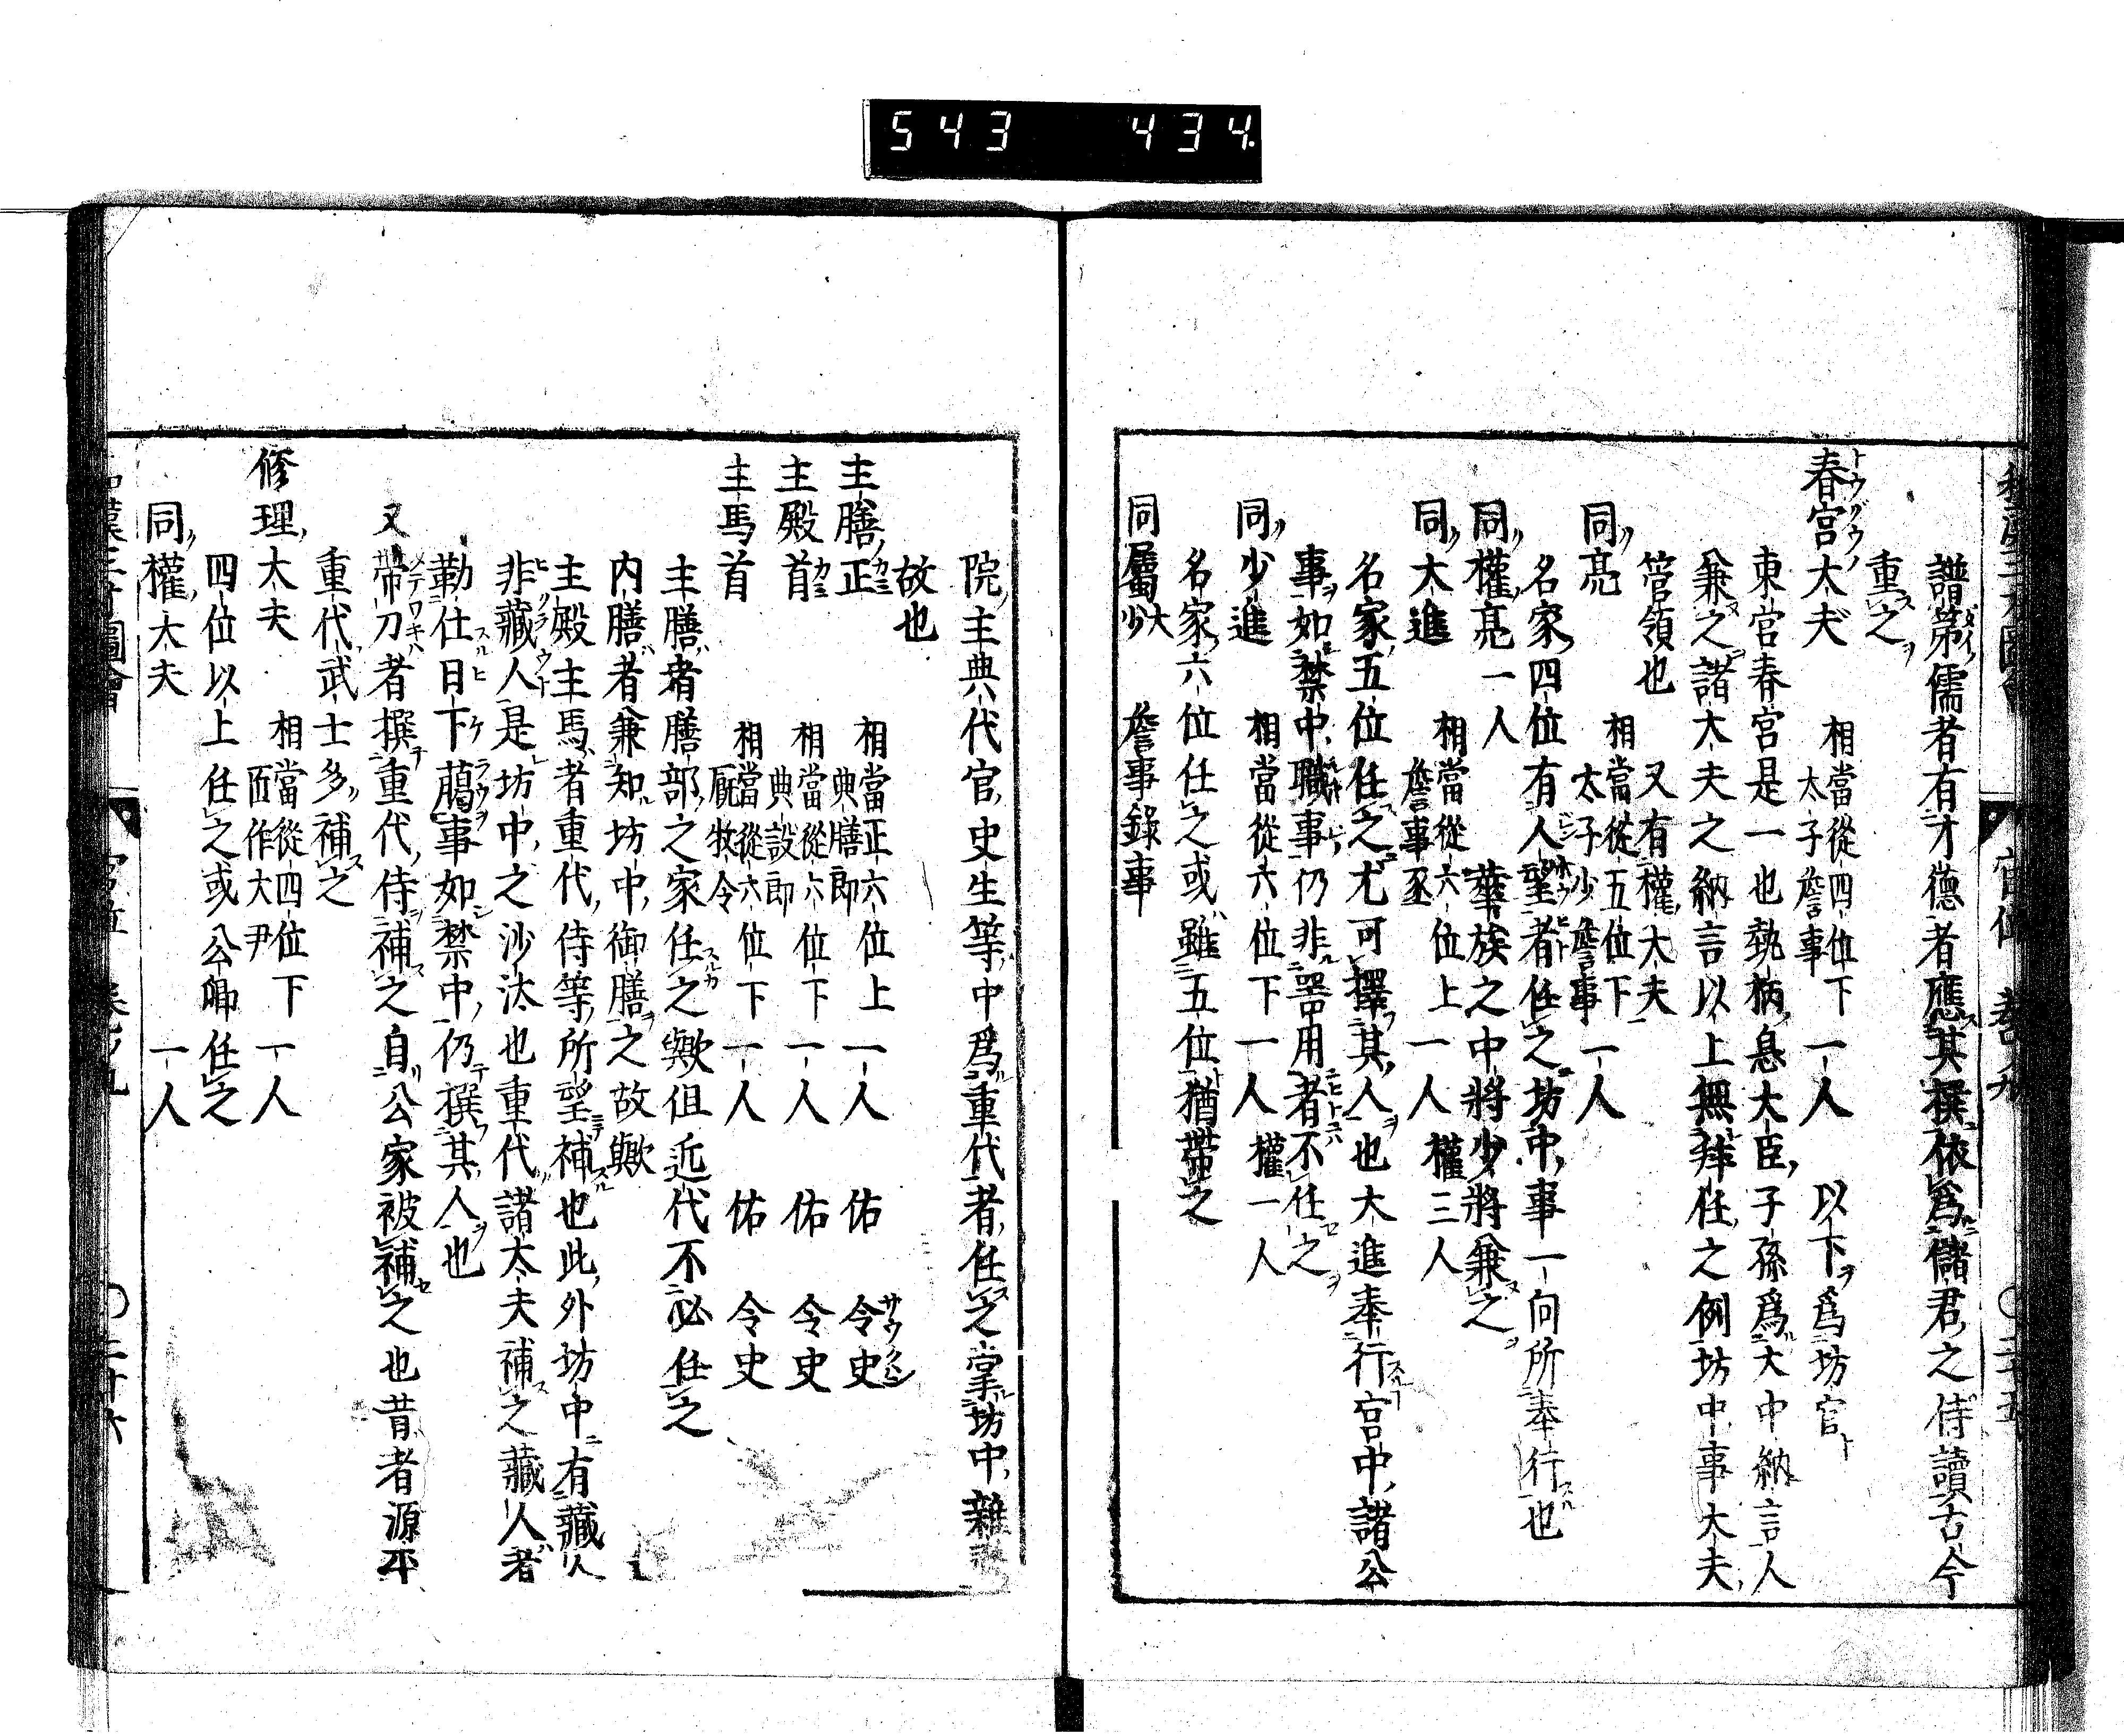 543 434
譜第儒者有才德者應其撰依爲儲君之侍讀古今
重之
春宮大夫 相當從四位下 太子詹事 一人 以下爲坊官
東宮春宮是一也執柄息大臣子孫爲大中納言人
兼之諸大夫之納言以上無拜任之例坊中事大夫
管領也 又有權大夫
同亮 相當從五位下 太子少詹事 一人
名家四位有人望者任之坊中事一向所奉行也
同權亮一人 華族之中將少將兼之
同大進 相當從六位上 詹事丞 一人 權三人
名家五位任之尤可擇其人也大進奉行宮中諸公
事如禁中職事仍非器用者不任之
同少進 相當從六位下 一人 權一人
名家六位任之或雖五位猶帶之
同屬 大少 詹事錄事
院主典代官史生等中爲重代者任之掌坊中雜
故也
主膳正 相當正六位上 典膳郎 一人 佑 令史
主殿首 相當從六位下 典設郎 一人 佑 令史
主馬首 相當從六位下 厩牧令 一人 佑 令史
主膳者膳部之家任之歟但近代不必任之
内膳者兼知坊中御膳之故歟
主殿主馬者重代侍等所望補也此外坊中有藏人
非藏人是坊中之沙汰也重代諸大夫補之藏人者
勤仕日下﨟事如禁中仍撰其人也
又帶刀者撰重代侍補之自公家被補之也昔者源平
重代武士多補之
修理大夫 相當從四位下 匠作大尹 一人
四位以上任之或公卿任之
同權大夫 一人